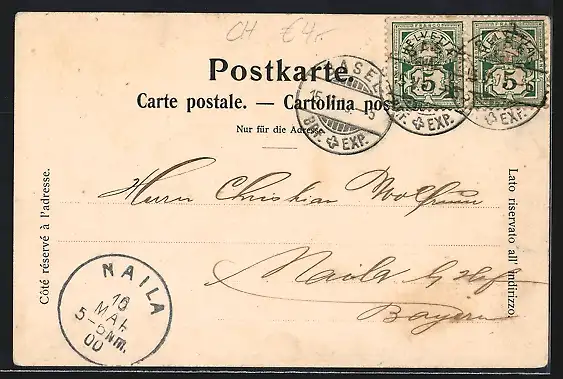 CH €4.-
FRANCO FRANCO
HELVETIA HELVETIA
5 5
Postkarte.
BASEL
Carte postale. — Cartolina pos
15
BHF. EXP.
EXP.
EXP.
Nur für die Adresse
Côté réservé à l'adresse.
Lato riservato all' indirizzo.
Herrn Christian Wolfrum
Naila b/ Hof
Bayern
NAILA
16
MAI.
5-6Nm.
00